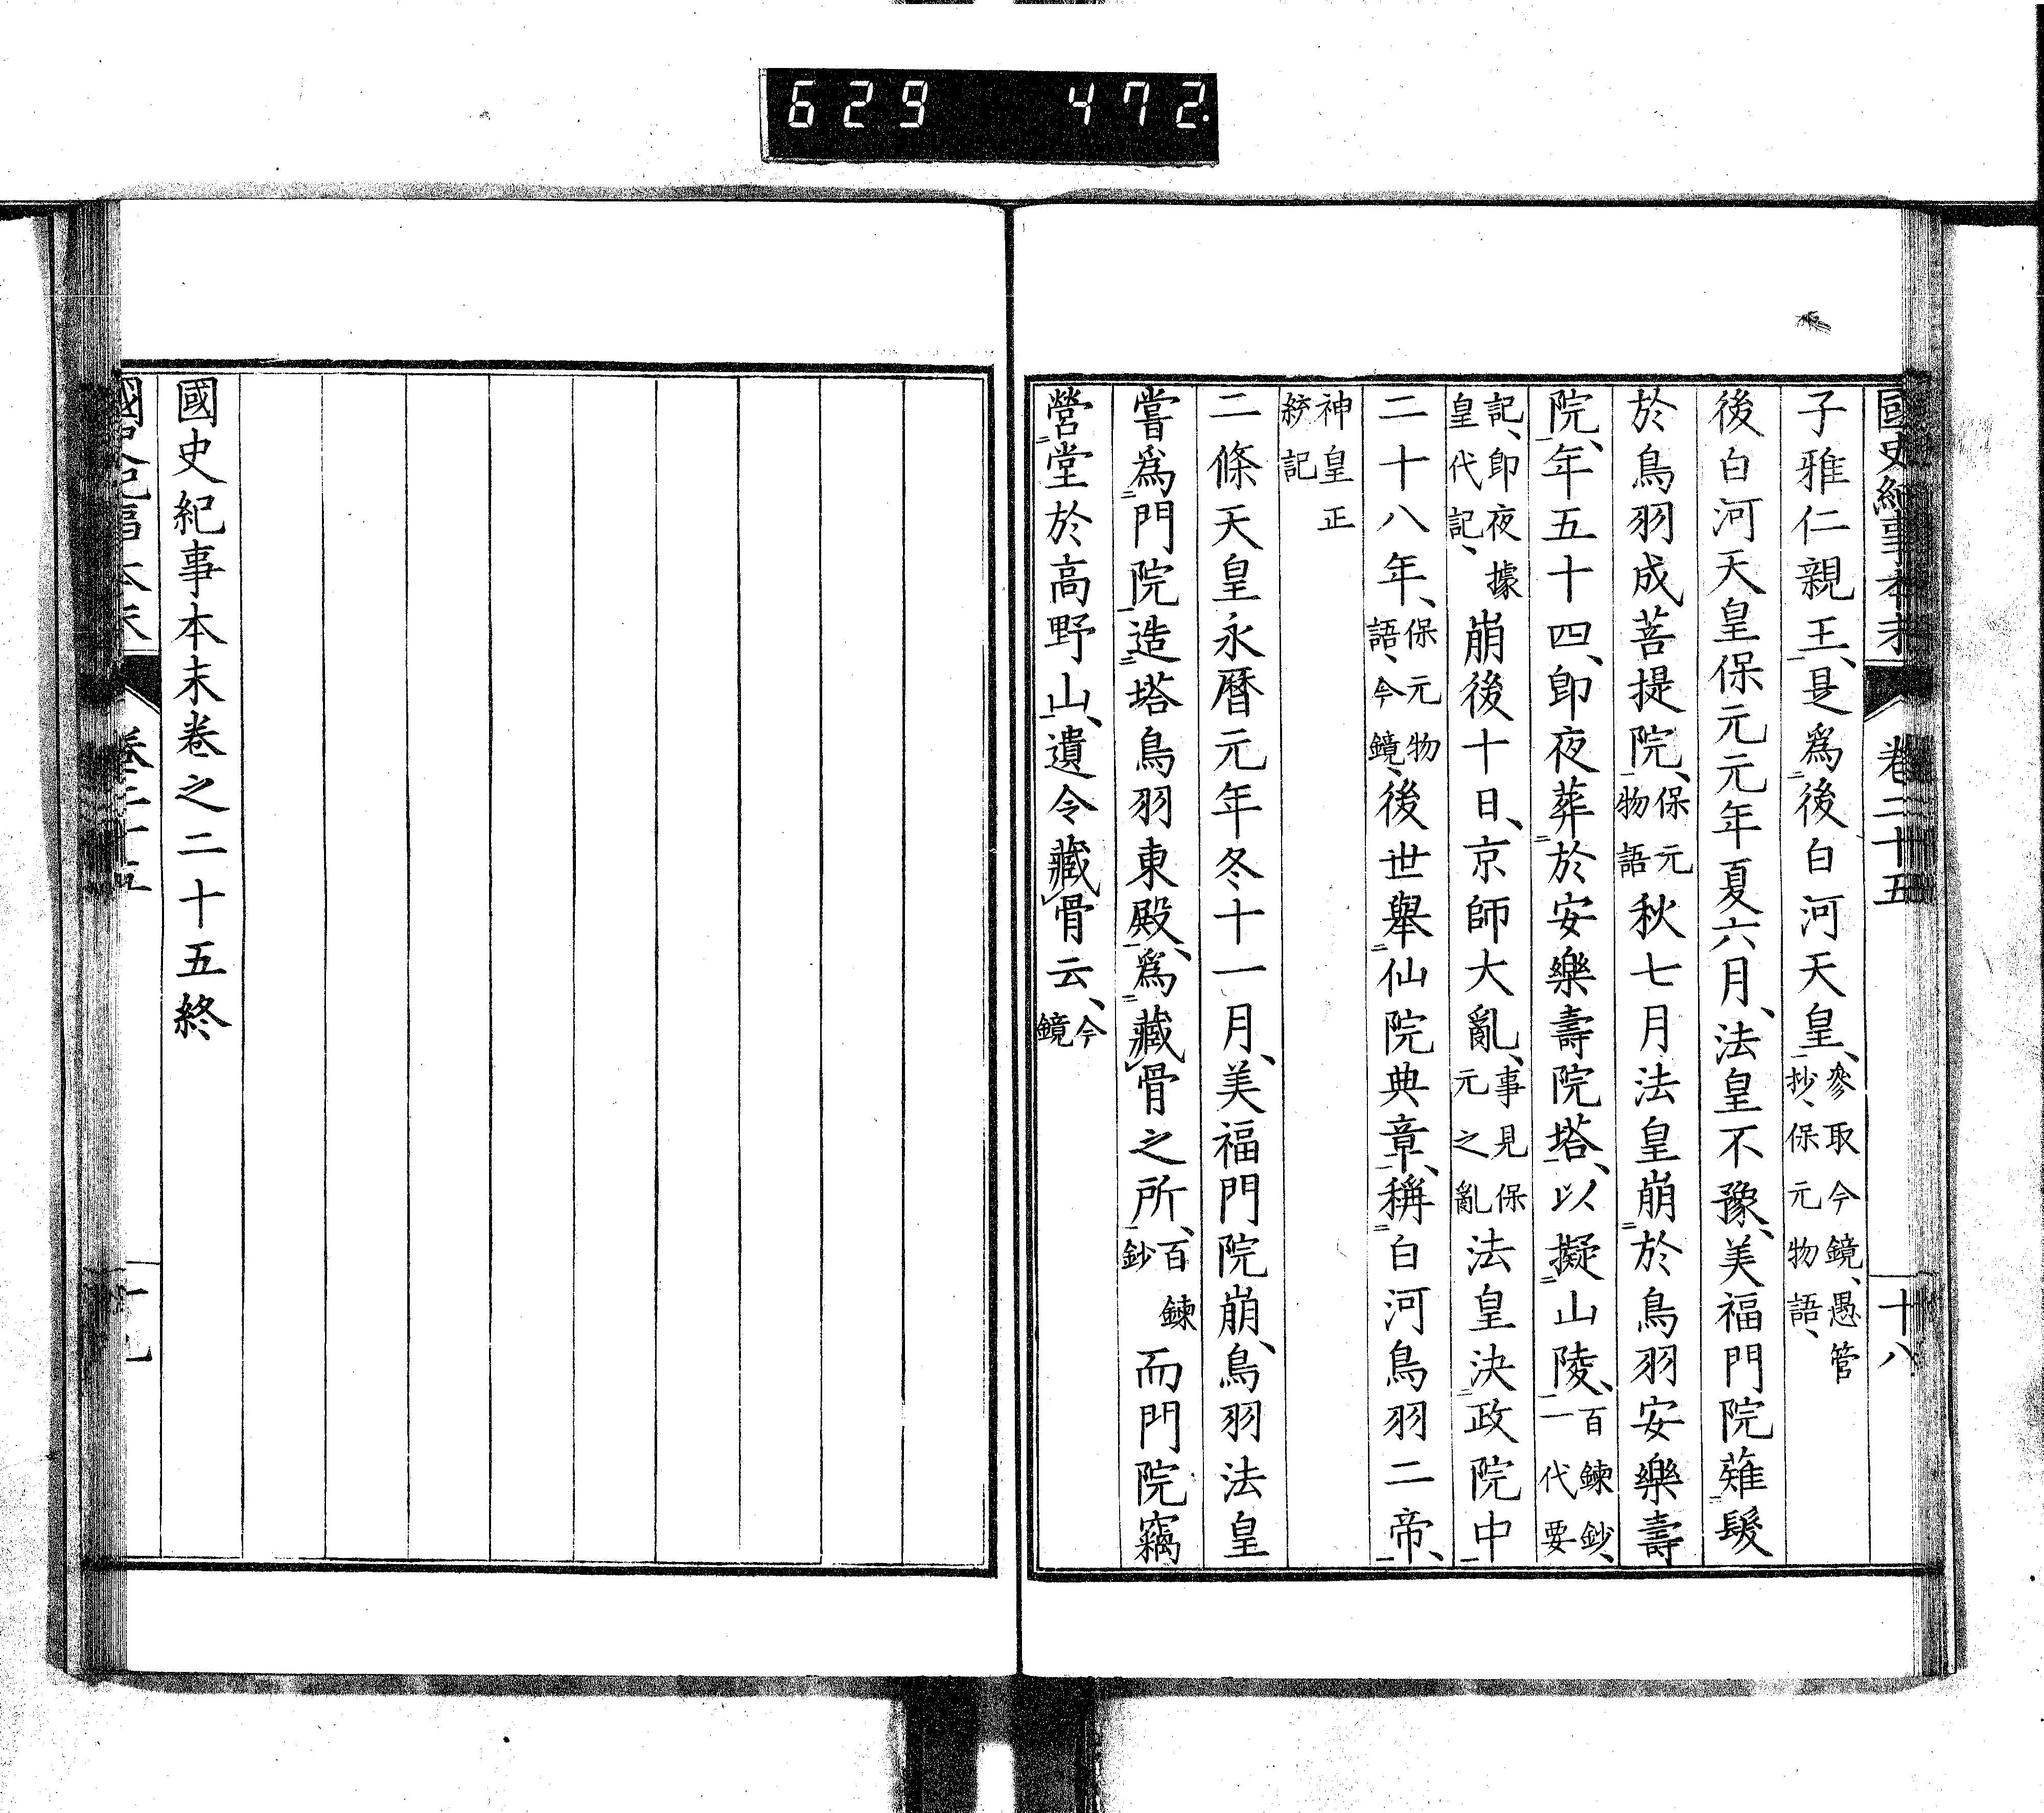 629 472.
國史紀事本末 卷二十五 十八
子雅仁親王、是爲後白河天皇、參取今鏡、愚管抄、保元物語、
後白河天皇保元元年夏六月、法皇不豫、美福門院薙髮
於鳥羽成菩提院、保元物語秋七月法皇崩於鳥羽安樂壽
院、年五十四、卽夜葬於安樂壽院塔、以擬山陵、百鍊鈔、一代要
記、卽夜據皇代記、崩後十日、京師大亂、事見保元之亂法皇決政院中
二十八年、保元物語、今鏡、後世舉仙院典章、稱白河鳥羽二帝、
神皇正統記
二條天皇永曆元年冬十一月、美福門院崩、鳥羽法皇
嘗爲門院造塔鳥羽東殿、爲藏骨之所、百鍊鈔而門院竊
營堂於高野山、遺令藏骨云、今鏡
國史紀事本末卷之二十五終